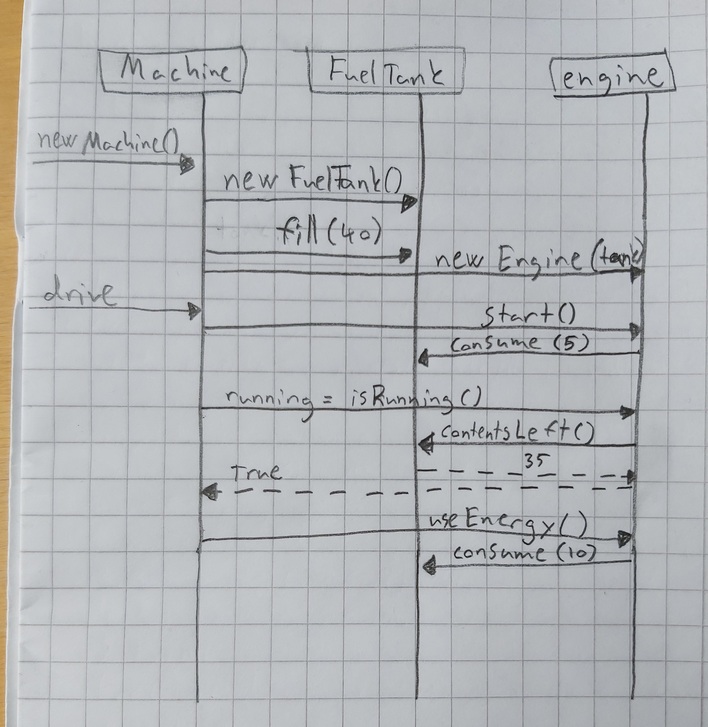 Machine
FuelTank
engine
new Machine()
new FuelTank()
fill(40)
new Engine(tank)
drive
Start()
Consume (5)
running = isRunning()
contentsLeft()
35
True
useEnergy()
consume (10)